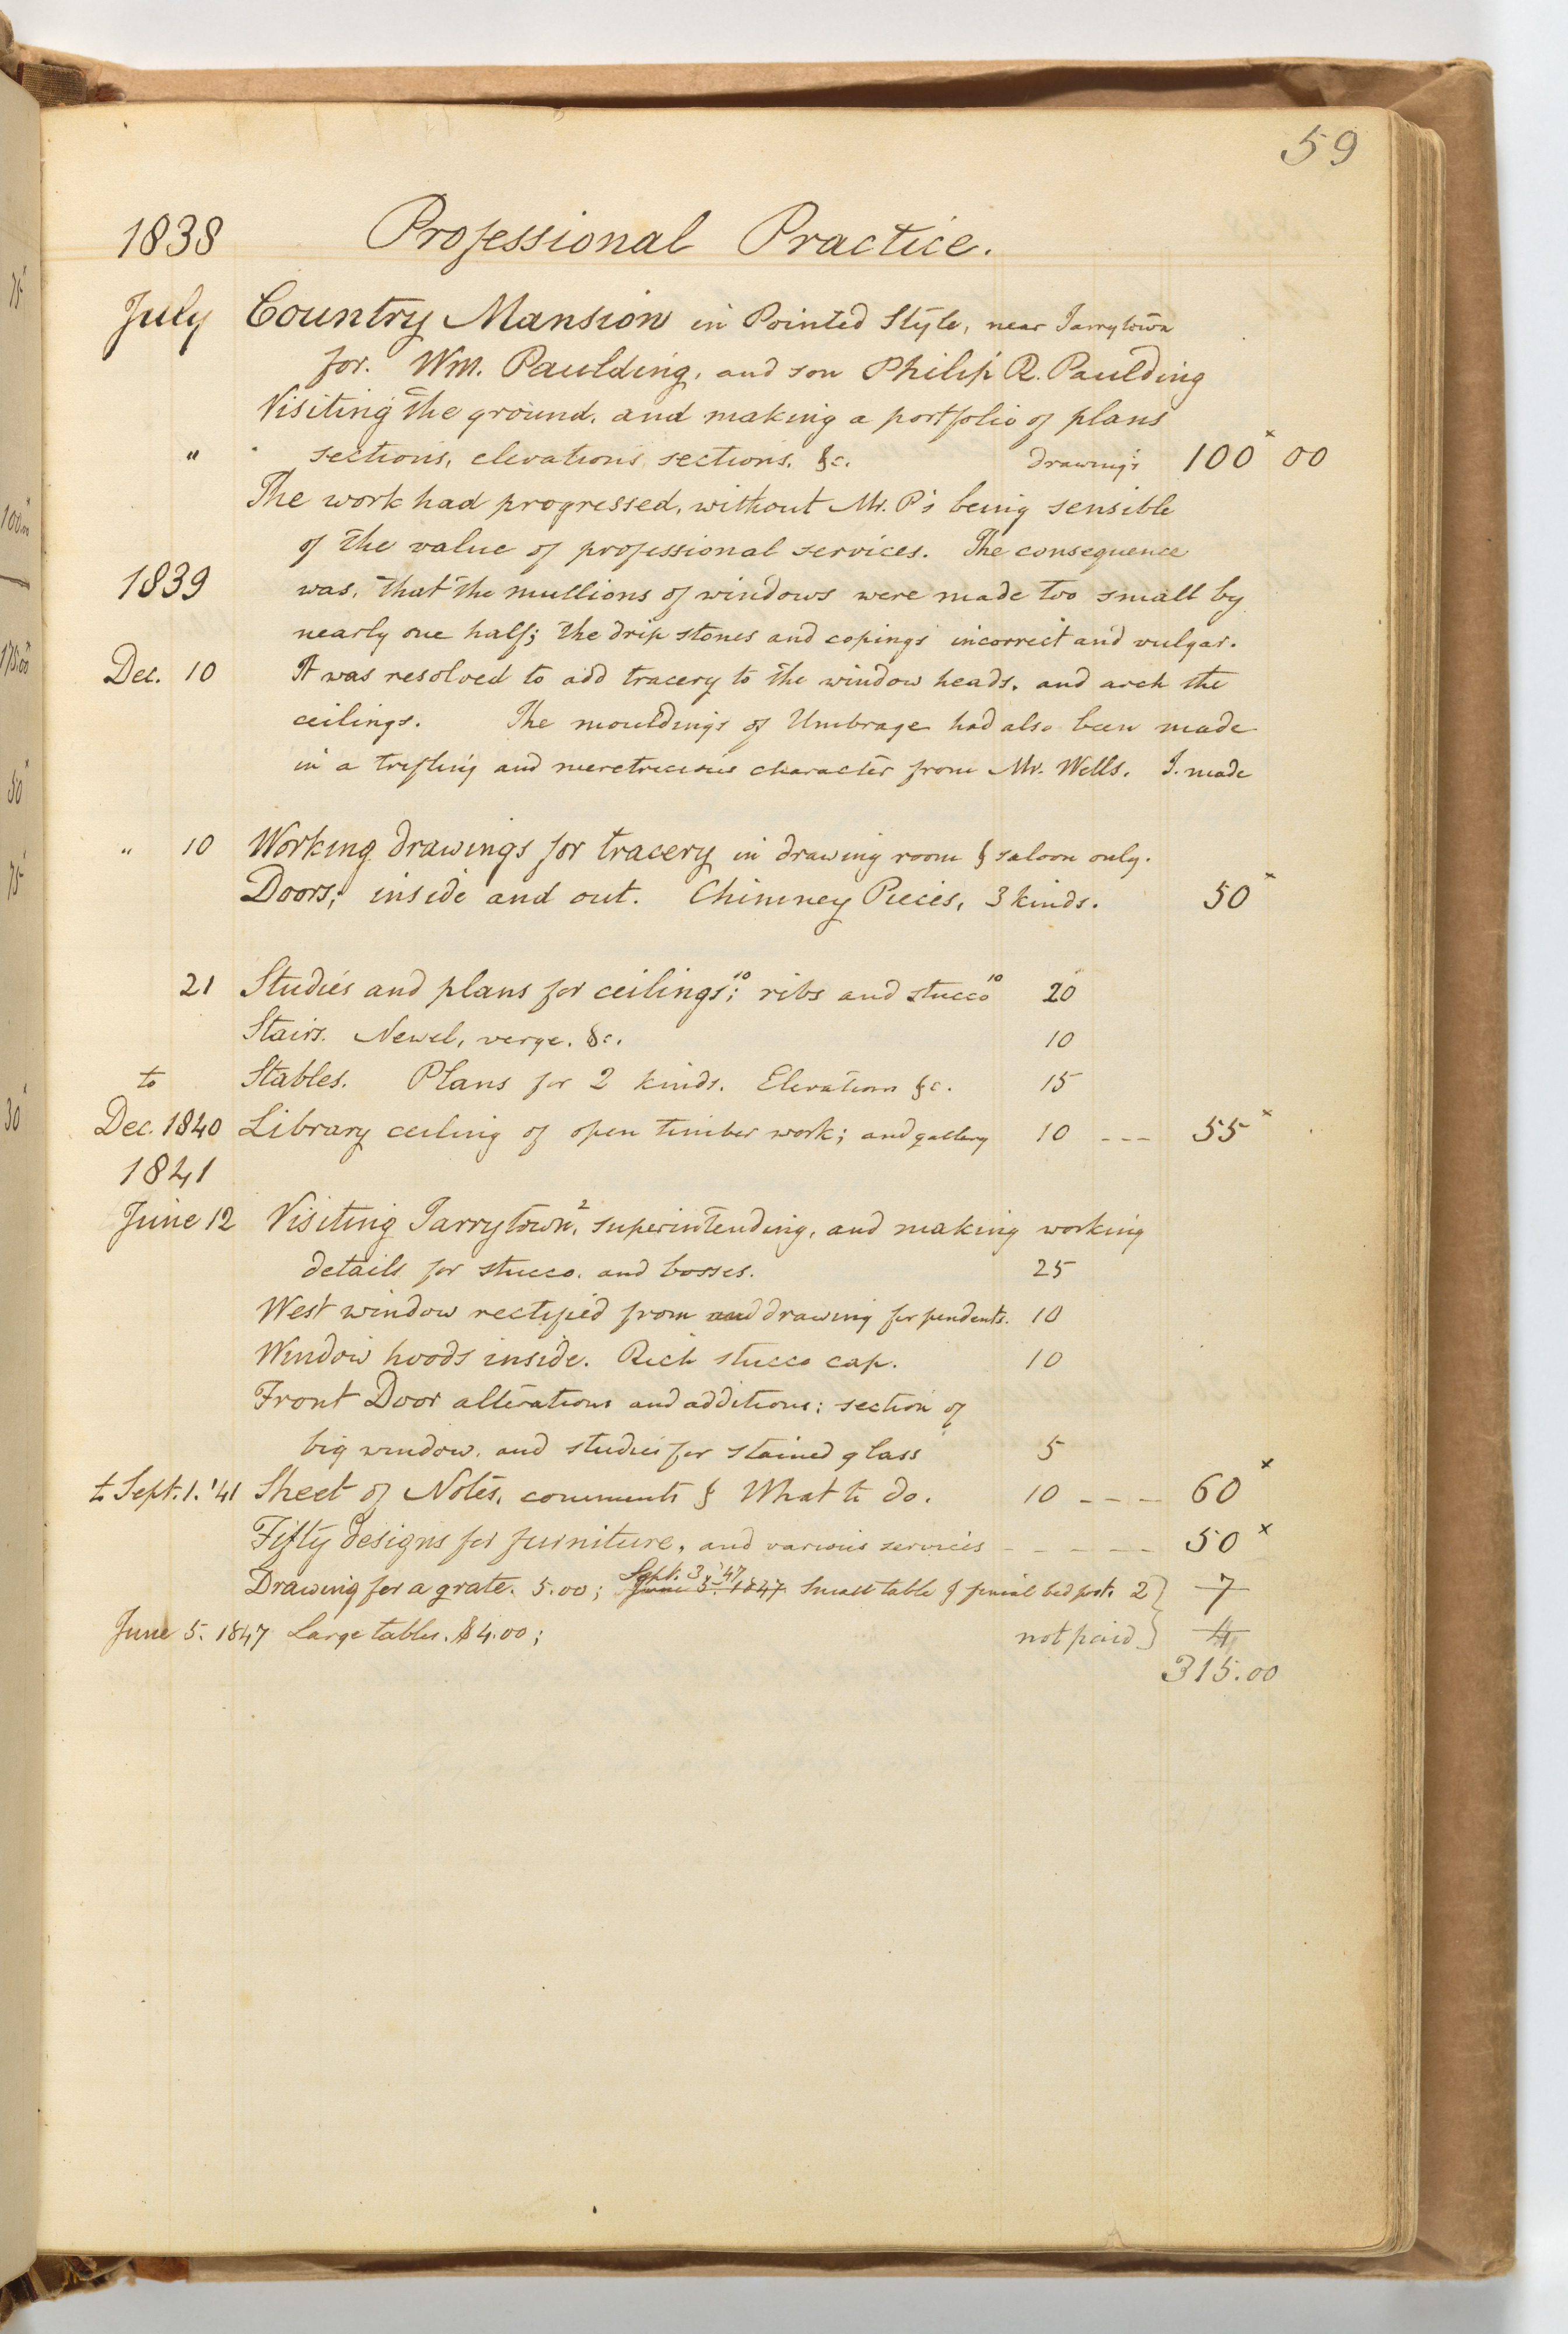 59
1838 Professional Practice.
July Country Mansion in Pointed Style, near Tarrytown
for. Wm. Paulding, and son Philip R. Paulding
Visiting the ground, and making a portfolio of plans
" sections, elevations, sections, &c. drawings 100 x 00
The work had progressed, without Mr. P's being sensible
of the value of professional services. The consequence
1839 was, that the mullions of windows were made too small by
nearly one half; the drip stones and copings incorrect and vulgar.
Dec. 10 It was resolved to add tracery to the window heads, and arch the
ceilings. The mouldings of Umbrage had also been made
in a trifling and meretricious character from Mr. Wells. I made
" 10 Working drawings for tracery in drawing room & saloon only.
Doors; inside and out. Chimney Pieces, 3 kinds. 50 x
21 Studies and plans for ceilings; 10 ribs and stucco 10 20
Stairs. Newel, verge. &c. 10
to Stables. Plans for 2 kinds. Elevations &c. 15
Dec. 1840 Library ceiling of open timber work; and gallery 10 --- 55 x
1841
June 12 Visiting Tarrytown, 2 superintending, and making working
details for stucco. and bosses. 25
West window rectified from and drawing for pendents. 10
Window hoods inside. Rich stucco cap. 10
Front Door alterations and additions: section of
big window, and studies for stained glass 5
to Sept. 1. '41 Sheet of Notes, comments & What to do. 10 --- 60 x
Fifty designs for furniture, and various services ----- 50 x
Sept. 3, '47
Drawing for a grate. 5.00; June 5. 1847. Small table & finial bed post. 2} 7
June 5. 1847 Large tables. $4.00; not paid} 4
315.00
75
100.00
175.00
50
75
30